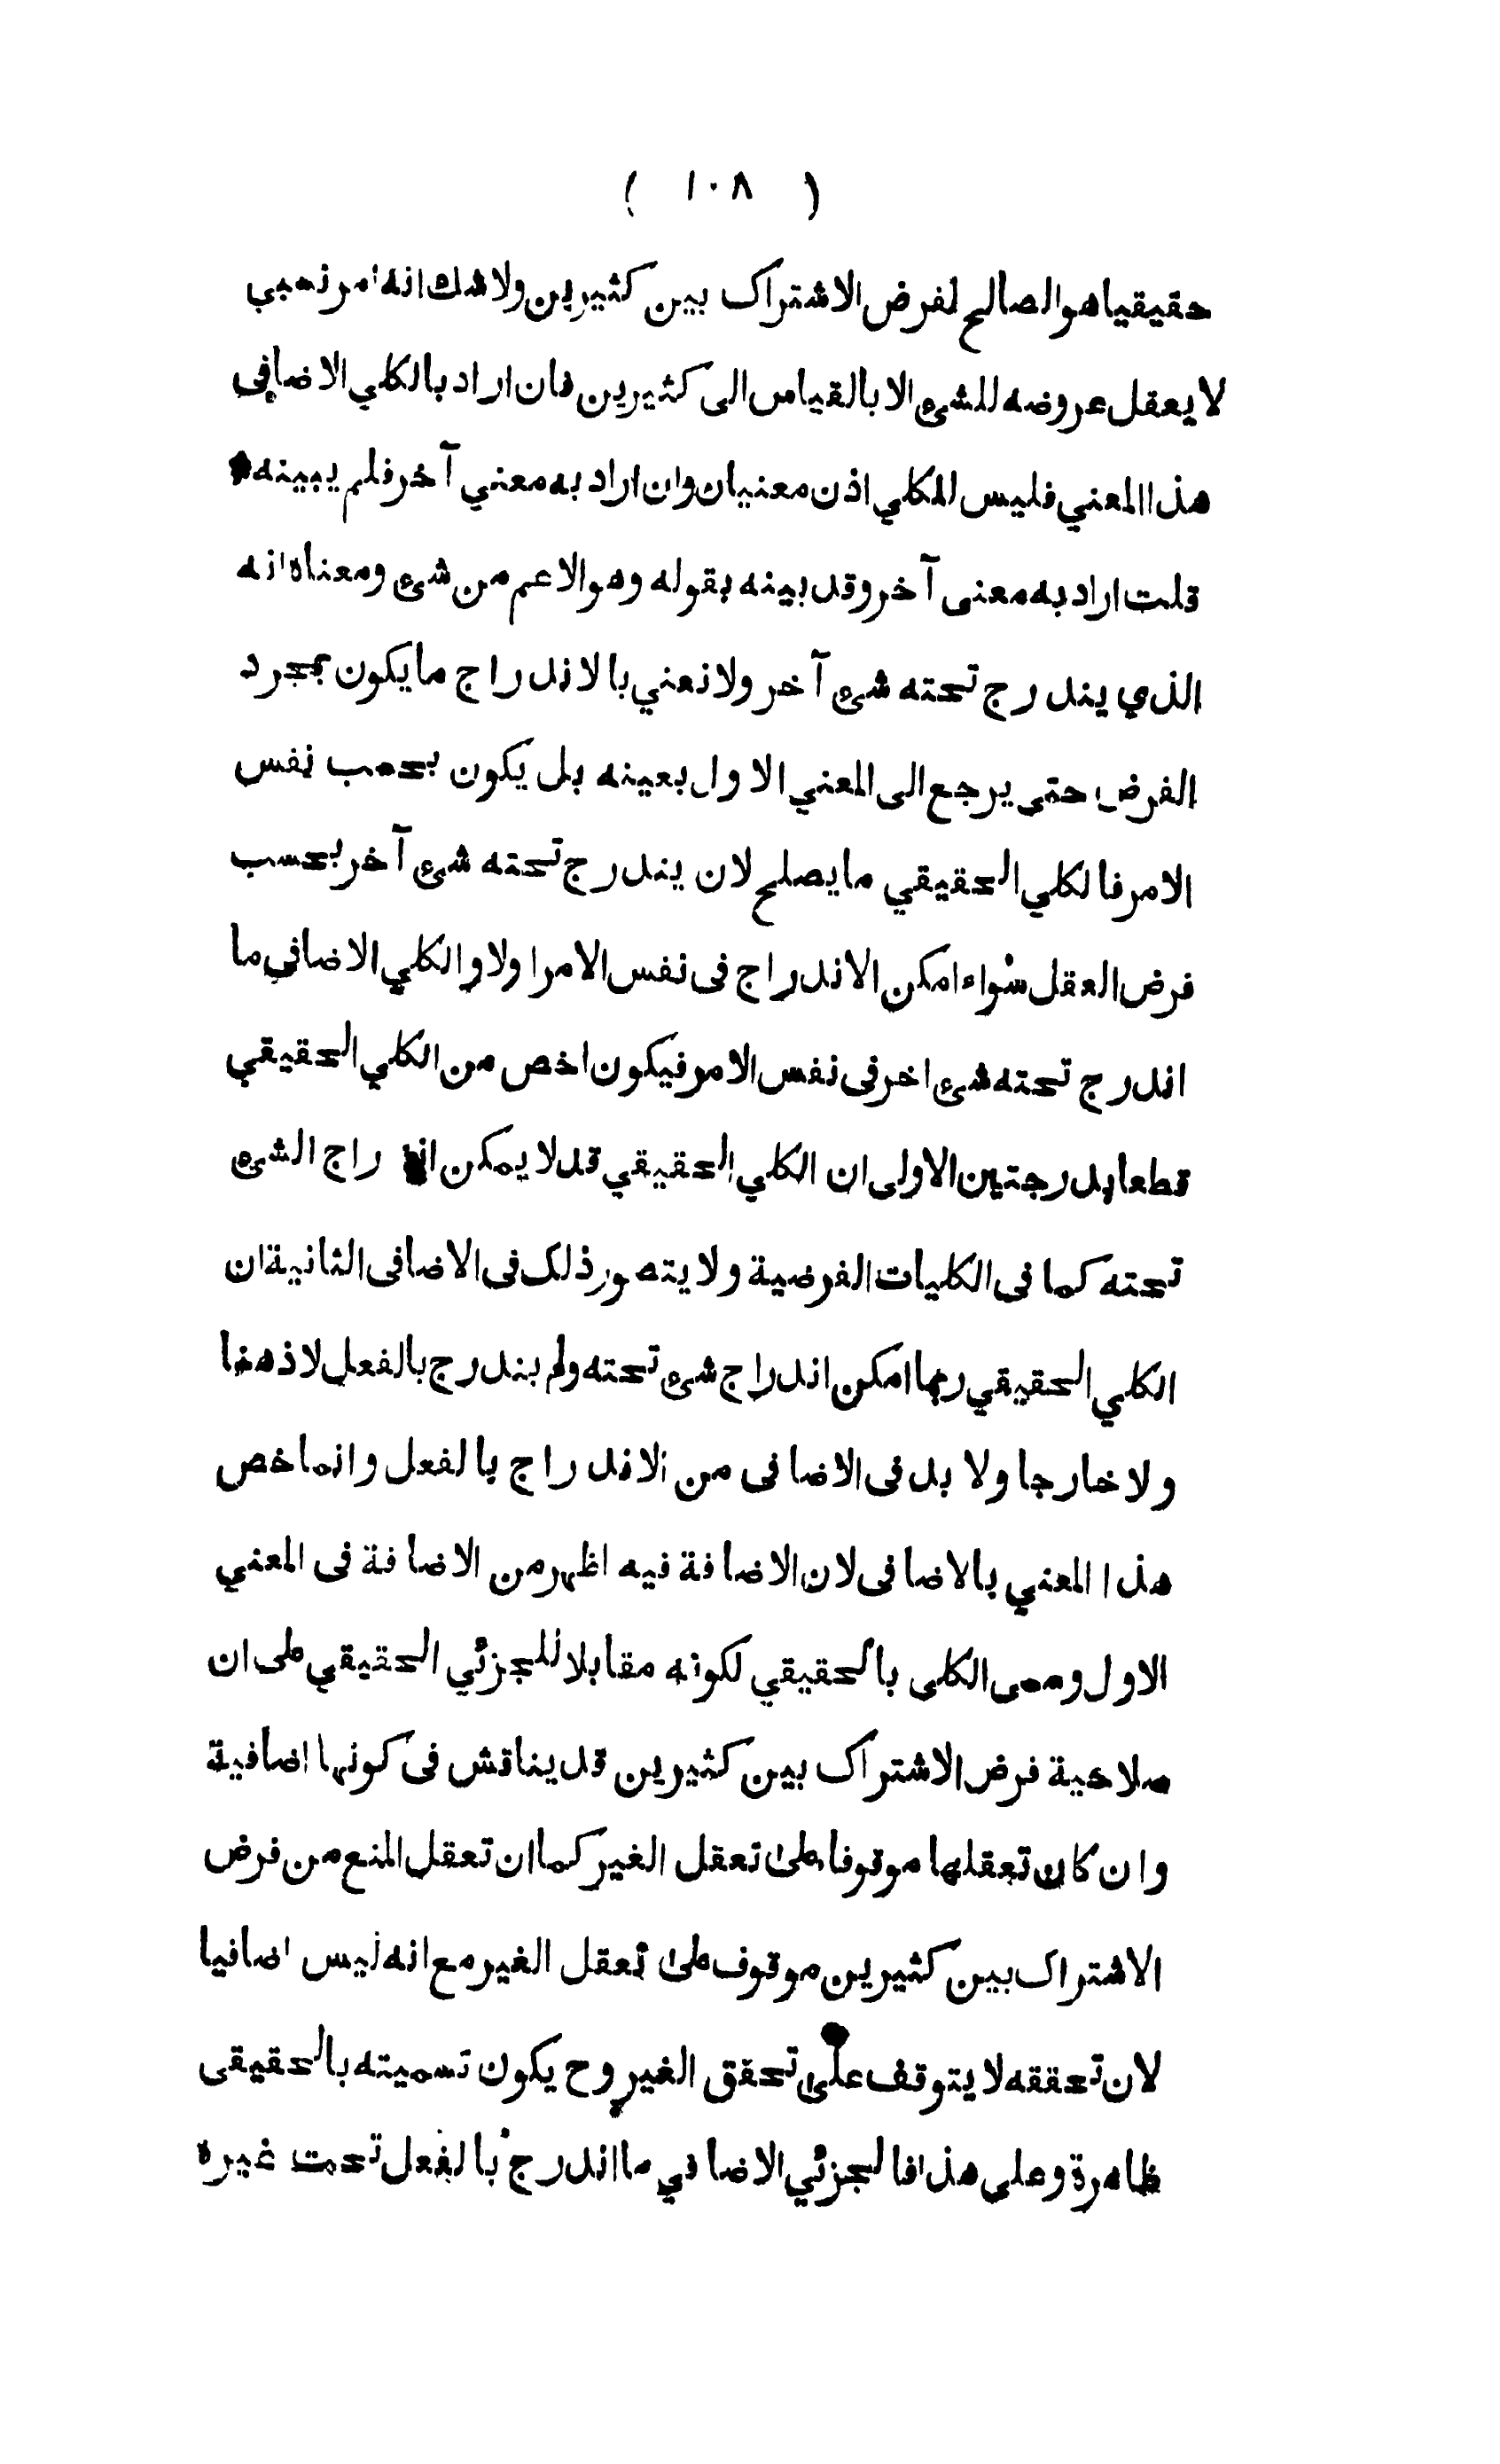 ( ١٠٨ )
حقيقيا هو الصالح لفرض الاشتراك بين كثيرين ولا شك انه امر نسبي
لا يعقل عروضه للشئ الا بالقياس الى كثيرين فان اراد بالكلي الاضافي
هذا المعني فليس للكلي اذن معنيان وان اراد به معني آخر فلم يبينه
قلت اراد به معنى آخر وقد بينه بقوله وهو الاعم من شئ ومعناه انه
الذي يندرج تحته شئ آخر ولا نعني بالاندراج ما يكون بمجرد
الفرض حتى يرجع الى المعني الاول بعينه بل يكون بحسب نفس
الامر فالكلي الحقيقي ما يصلح لان يندرج تحته شئ آخر بحسب
فرض العقل سواء امكن الاندراج فى نفس الامر اولا والكلي الاضافي ما
اندرج تحته شئ اخر فى نفس الامر فيكون اخص من الكلي الحقيقي
قطعا بدرجتين الاولى ان الكلي الحقيقي قد لا يمكن اندراج الشئ
تحته كما فى الكليات الفرضية ولا يتصور ذلك فى الاضافى الثانية ان
الكلي الحقيقي ربما امكن اندراج شئ تحته ولم يندرج بالفعل لا ذهنا
ولا خارجا ولا بد فى الاضافى من الاندراج بالفعل وانما خص
هذا المعني بالاضافى لان الاضافة فيه اظهر من الاضافة فى المعني
الاول وسمى الكلى بالحقيقي لكونه مقابلا للجزئي الحقيقي على ان
صلاحية فرض الاشتراك بين كثيرين قد يناقش فى كونها اضافية
وان كان تعقلها موقوفا على تعقل الغير كما ان تعقل المنع من فرض
الاشتراك بين كثيرين موقوف على تعقل الغير مع انه ليس اضافيا
لان تحققه لا يتوقف على تحقق الغير وح يكون تسميته بالحقيقى
ظاهرة وعلى هذا فالجزئي الاضافي ما اندرج بالفعل تحت غيره